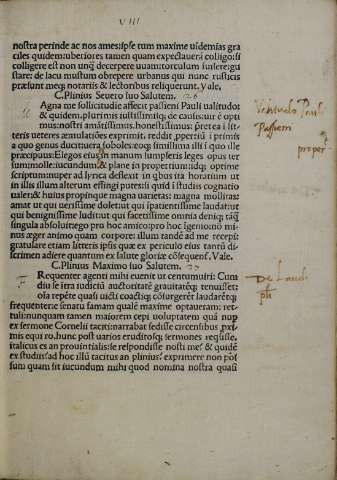 VIII
nostra perinde ac nos ames: ipse tum maxime uidemias gra
ciles quidem: uberiores tamen quam expectauerā colligo: si
colligere est non unq̄ decerpere uuam: torculum inuisere: gu
stare: de lacu mustum obrepere urbanis qui nunc rusticis
præsunt meq; notariis & lectoribus reliquerunt. Vale.
C. Plinius Seuero suo Salutem. 26
Agna me sollicitudie affecit passieni Pauli ualitudo
& quidem. plurimis iustissimisq; de causis: uir ē opti
mus: nostri amātissimus. honestissimus: prętea ī lit
teris ueteres æmulatiōes exprimit. reddit. propertiū ī primis
a quo genus ducit: uera soboles: eoq; simillima illi ī quo ille
præcipuus: Elegos eius in manum sumpseris leges opus ter
sum molle: iucundum: & plane in propertii domo scriptū: nup
ad lyrica deflexit in qbus ita horatium ut
in illis illum alterum effingi putes: si quid ī studiis cognatio
ualet: & huius propinquum magna uarietas: magna mollitas:
amat ut qui uerissime dolet: ut qui īpatientissime laudat: ut
qui benignissime ludit: ut qui facetissime omnia deniq; tāq̄
singula absoluit: ego pro hoc amico: pro hoc īgenio nō mi
nus æger animo quam corpore: illum tandē ad me recepi:
gratulare etiam litteris ipsis quæ ex periculo eius tantū di
scrimen adiere quantum ex salute gloriæ cōsequent̄. Vale.
C. Plinius Maximo suo Salutem. 27
Requenter agenti mihi euenit ut centumuiri: Cum
diu se ītra iudiciū auctoritatē grauitatēq; tenuisset
oīa repēte quasi uicti coactiq; cōsurgerēt laudarētq;
frequenter: e senatu famam qualē maxime optaueram: ret
tuli: nunquam tamen maiorem cepi uoluptatem quā nup
ex sermone Cornelii taciti: narrabat sedisse circensibus pxi
mis equi ro. hunc post uarios eruditosq; sermones reqsisse,
italicus es an prouincialis: se respondisse nosti me: & quidē
ex studiis: ad hoc illū tacitus an plinius: exprimere non pos
sum quam sit iucundum mihi quod nomina nostra quasi
Passieni
proper
De Laud